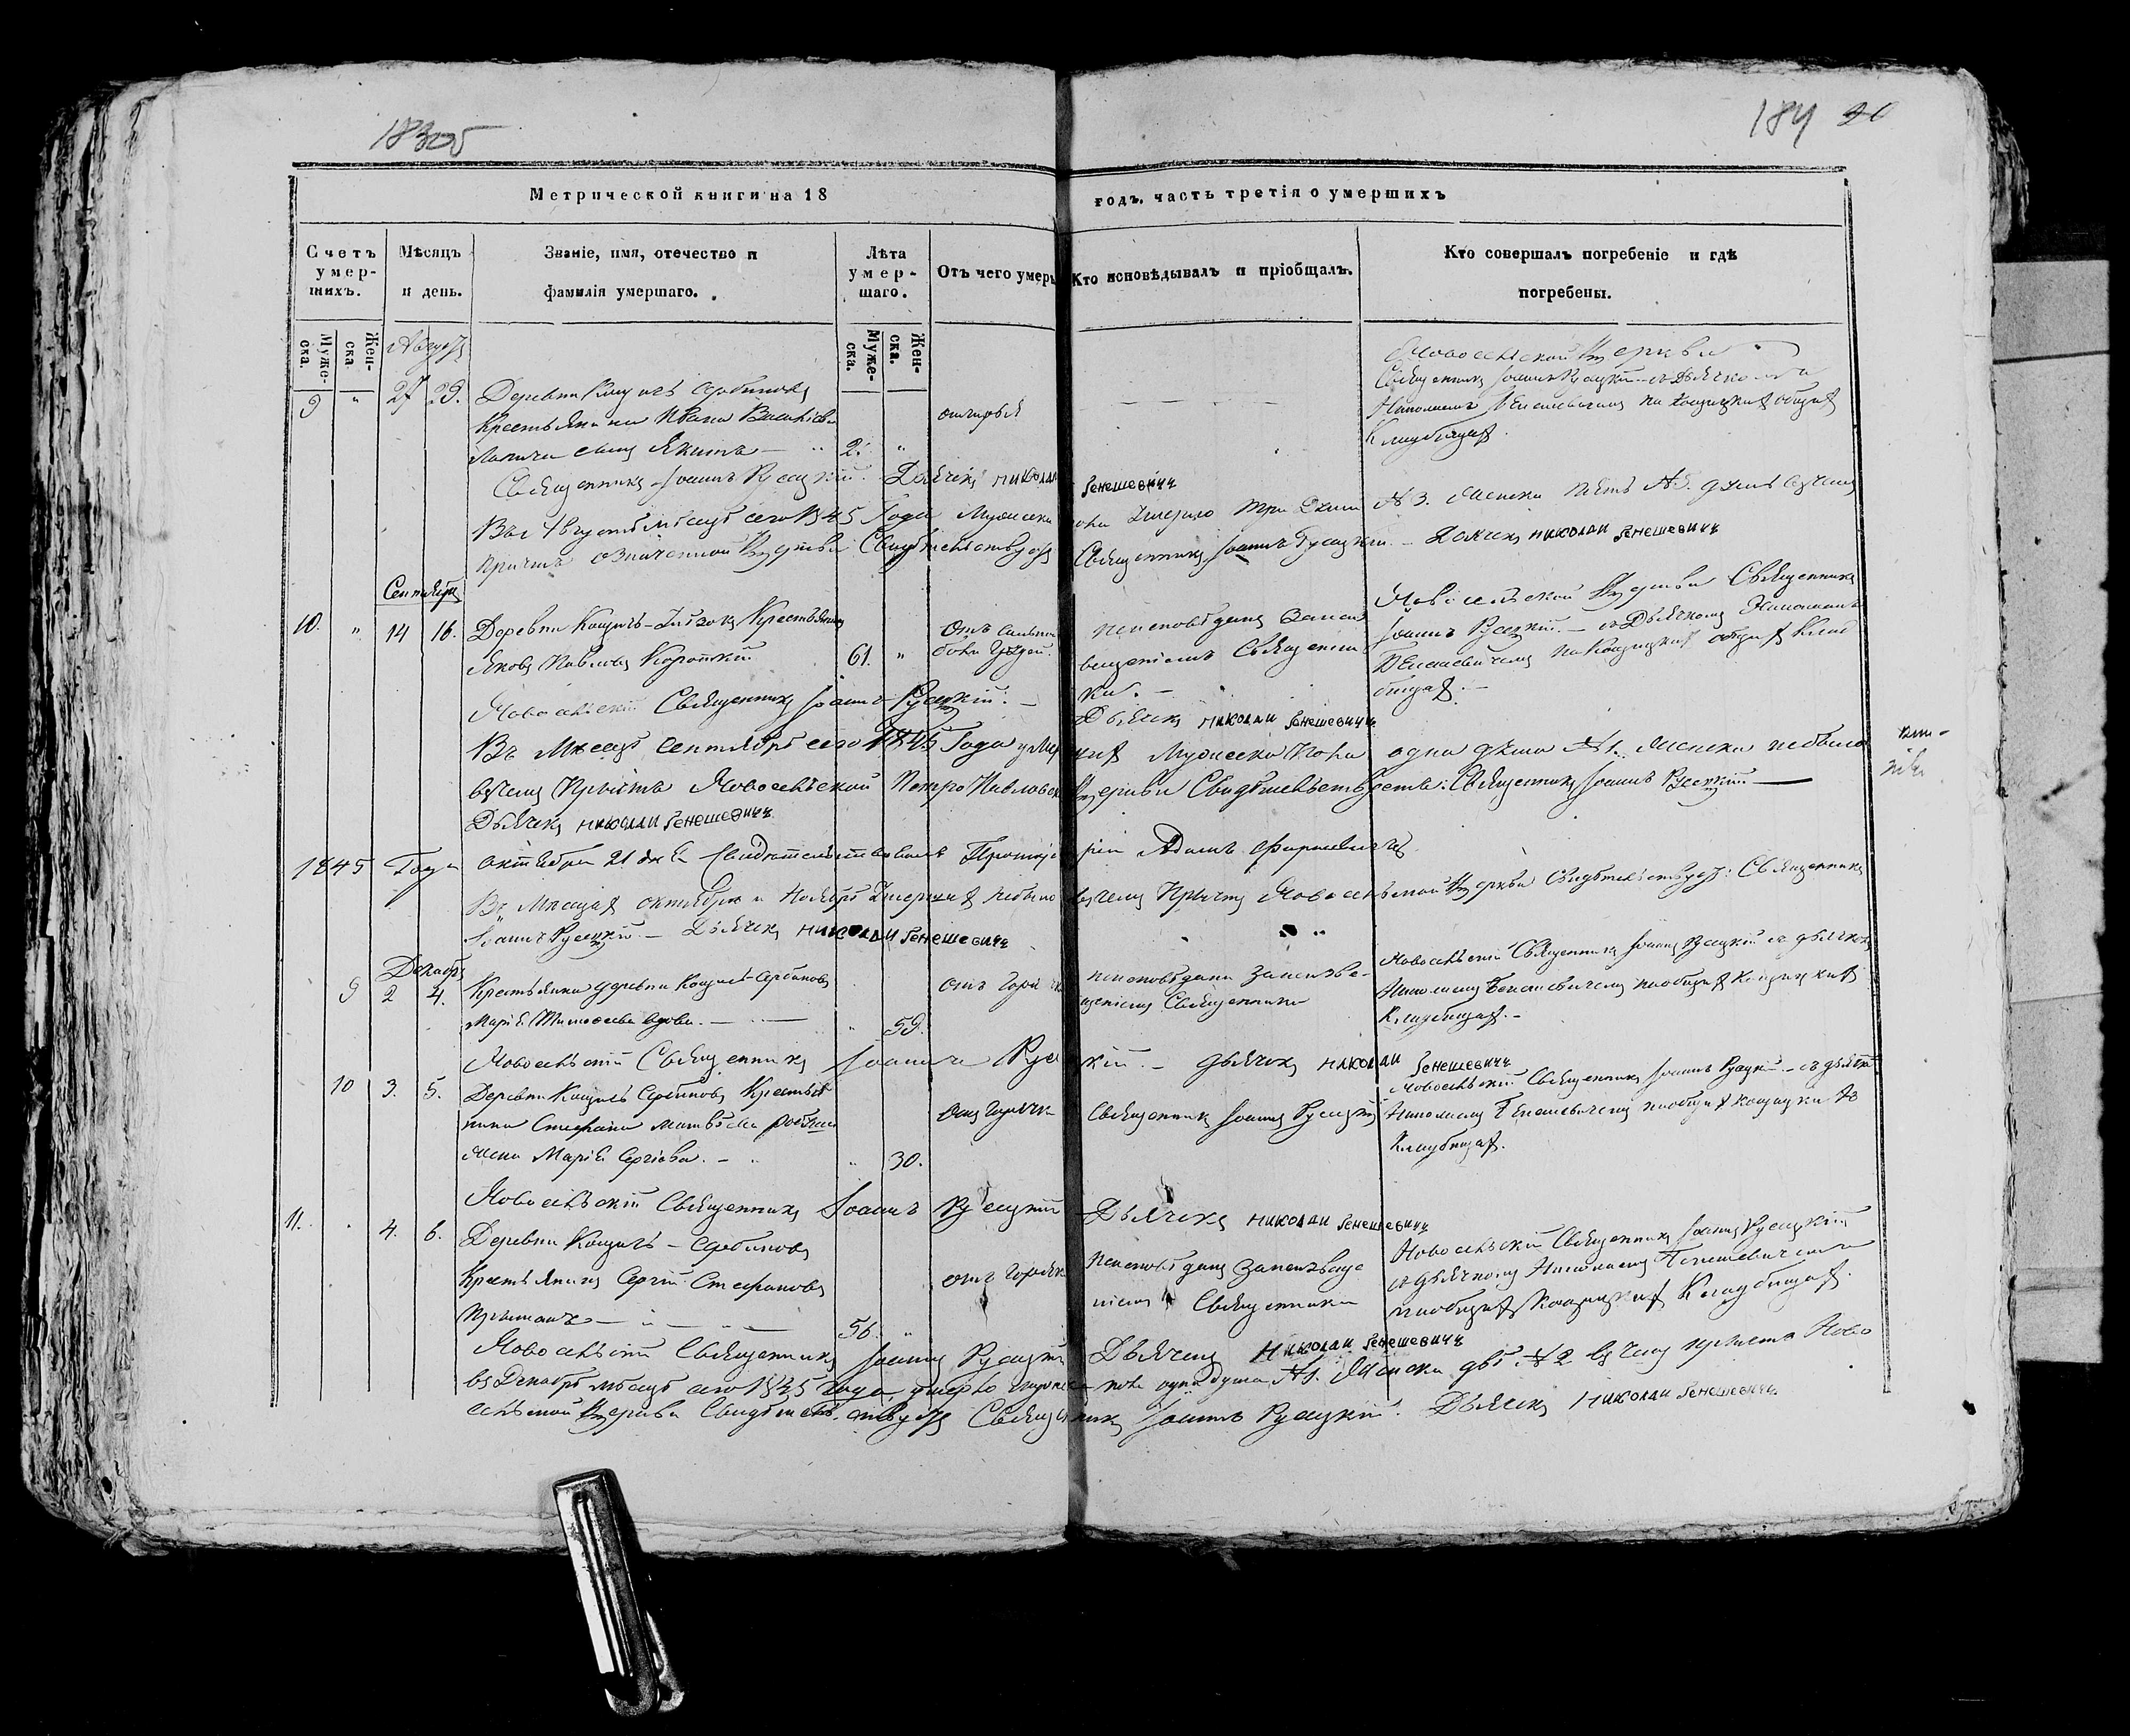 183об
184 20
Метрической книги на 18 годъ. часть третія о умершихъ
Счетъ умер-шихъ.
Мѣсяцъ и день.
Званіе, имя, отечество и фамилія умершаго.
Лѣта умер-шаго.
Отъ чего умеръ
Кто исповѣдывалъ и пріобщалъ.
Кто совершалъ погребеніе и гдѣ погребены.
Муже-ска. Жен-ска
Муже-ска. Жен-ска.
Августъ
Новосельской Церкви
Священникъ Іоаннъ Русецкій съ Дьячкомъ
9 " 27 29. Деревни Кощичъ
Крестьянина Ивана
сынъ Якимъ — " 2. "
Николаемъ Бенешевичемъ на Кощицкихъ общихъ
Кладбищахъ.
Священникъ Іоаннъ Русецкій. Дьячекъ Николай Бенешевичъ
Въ Августѣ мѣсяцѣ сего 1845 Года Мужеска пола умерло три души № 3. Женска пять № 5. душъ въ чемъ
причтъ означенной Церкви Свидѣтельствуетъ Священникъ Іоаннъ Русецкій. — Дьячекъ Николай Бенешевичъ
Сентябрь
10. " 14 16. Деревни Кощичъ Крестьянинъ
Яковъ Павловъ Короткій 61. "
неисповѣданъ занеиз
вещеніемъ Священни
ка. —
Новосельской Церкви Священникъ
Іоаннъ Русецкій. — съ Дьячкомъ Николаемъ
Бенешевичемъ на Кощицкихъ общихъ Клад
бищахъ. —
Новосельскій Священникъ Іоаннъ Русецкій. — Дьячекъ Николай Бенешевичъ
Въ Мѣсяцѣ Сентябрѣ сего 1845 Года умершихъ Мужеска пола одна душа № 1. Женска небыло
въ чемъ Причтъ Новосельской Петро Павловской Церкви Свидѣтельствуетъ: Священникъ Іоаннъ Русецкій —
Дьячекъ Николай Бенешевичъ
1845 Года октября 21 дня Свидѣтельствовалъ Протоіерей Адамъ
Въ Мѣсяцахъ октябрѣ и Ноябрѣ Умершихъ небыло въ чемъ Причтъ Новосельской Церкви Свидѣтельствуетъ: Священникъ
Іоаннъ Русецкій. — Дьячекъ Николай Бенешевичъ
Декабрь
9 2 4. Крестьянка деревни Кощичъ
Марія Тимоѳеева вдова. — " 59.
отъ Горячки
неисповѣдана занеизве-
щеніемъ Священника
Новосельскій Священникъ Іоаннъ Русецкій съ дьячкомъ
Николаемъ Бенешевичемъ наобщихъ Кощицкихъ
Кладбищахъ. —
Новосельскій Священникъ Іоаннъ Русецкій. — Дьячекъ Николай Бенешевичъ
10 3. 5. Деревни Кощичъ Крестья
нина Стефана
жена Марія Сергіева. — " " 30.
отъ Горячки
Священникъ Іоаннъ Русецкій
Новосельскій Священникъ Іоаннъ Русецкій. — съ дьячкомъ
Николаемъ Бенешевичемъ наобщихъ Кощицкихъ
Кладбищахъ.
Новосельскій Священникъ Іоаннъ Русецкій Дьячекъ Николай Бенешевичъ
11. 4. 6. Деревни Кощичъ —
Крестьянинъ Сергій Стефановъ
56. "
отъ Горячки
неисповѣданъ занеизвеще
ніемъ Священника
Новосельскій Священникъ Іоаннъ Русецкій
съ дьячкомъ Николаемъ Бенешевичемъ
наобщихъ Кощицкихъ Кладбищахъ.
Новосельскій Священникъ Іоаннъ Русецкій Дьячекъ Николай Бенешевичъ
въ Декабрѣ мѣсяцѣ сего 1845 года умерло мужеска пола одна душа № 1. Женска двѣ № 2 въ чемъ причтъ Ново
сельской Церкви Свидѣтельствуетъ Священникъ Іоаннъ Русецкій. Дьячекъ Николай Бенешевичъ